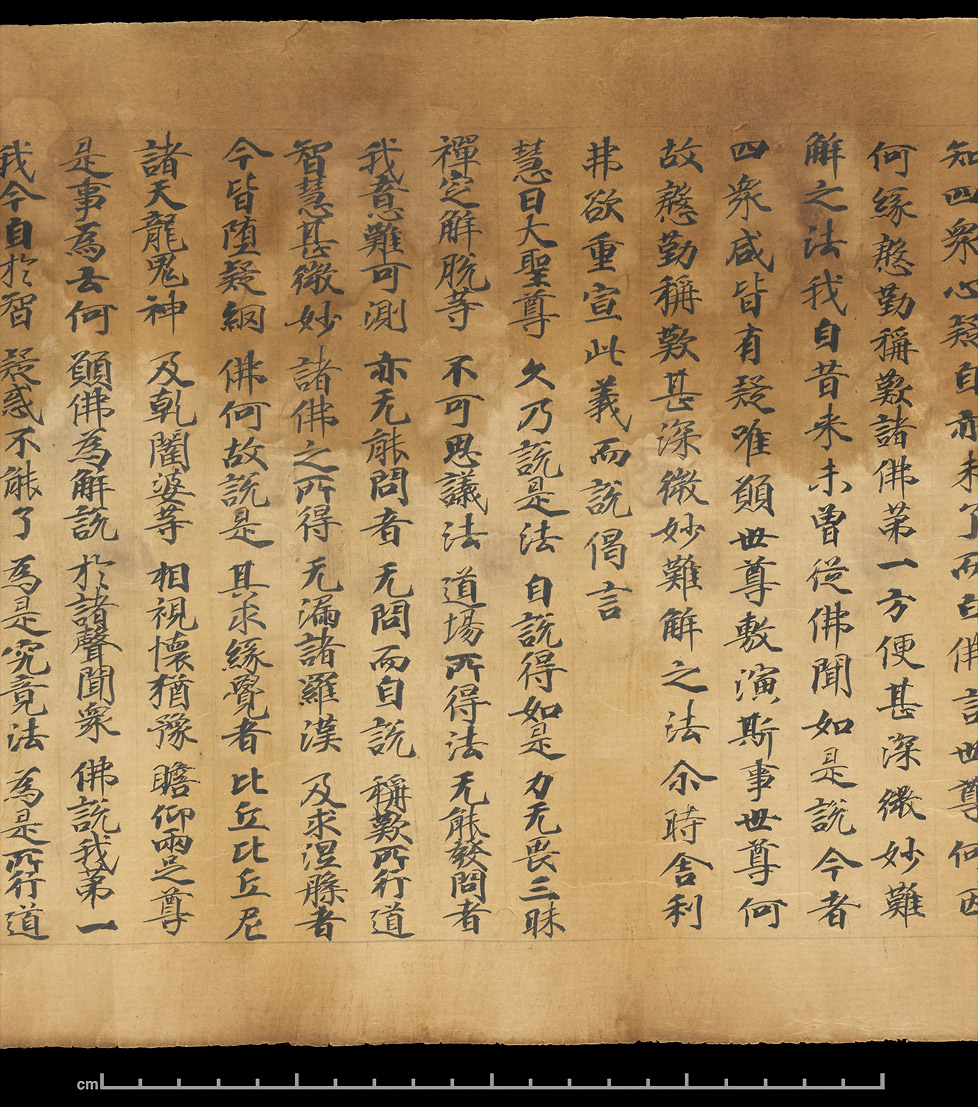 知四衆心疑自亦未了而白佛言世尊何因
何緣慇勤稱歎諸佛第一方便甚深微妙難
解之法我自昔来未曾從佛聞如是說今者
四衆咸皆有疑唯願世尊敷演斯事世尊何
故慇勤稱歎甚深微妙難解之法尒時舍利
弗欲重宣此義而說偈言
慧日大聖尊 久乃說是法 自說得如是 力无畏三昧
禪定解脫等 不可思議法 道場所得法 无能發問者
我意難可測 亦无能問者 无問而自說 稱歎所行道
智慧甚微妙 諸佛之所得 无漏諸羅漢 及求涅槃者
今皆堕疑網 佛何故說是 其求緣覺者 比丘比丘尼
諸天龍鬼神 及乾闥婆等 相視懷猶豫 瞻仰兩足尊
是事為云何 願佛為解說 於諸聲聞衆 佛說我第一
我今自於智 疑惑不能了 為是究竟法 為是所行道
cm